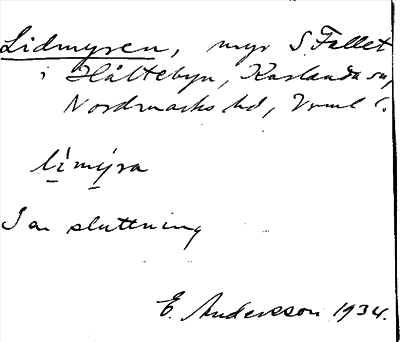 Lidmyren, myr S. Fallet
i Håltebyn, Karlanda sn,
Nordmarks hd, Vrml l.
li̱´my̱´ra
I en sluttning
E. Andersson 1934.